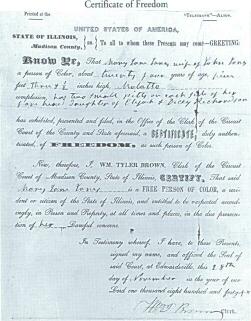 Certificate of Freedom
"TELEGRAPH"—ALTON.
UNITED STATES OF AMERICA,
STATE OF ILLINOIS,
Madison County, ss. To all to whom these Presents may come—GREETING:
Know Ye, That Mary Jane Jones wife of John Jones
a person of Color, about twenty four years of age, five
feet three & ½ inches high Mulatto
complexion has two small pitts on each side of her
face near Daughter of Elijah & Diza Richardson
has exhibited, presented and filed, in the Office of the Clerk of the Circuit
Court of the County and State aforesaid, a CERTIFICATE, duly authen-
ticated, of FREEDOM, as such person of Color.
Now, therefore, I, WM. TYLER BROWN, Clerk of the Circuit
Court of Madison County, State of Illinois, CERTIFY, That said
Mary Jane Jones is a FREE PERSON OF COLOR, a res-
ident or citizen of the State of Illinois, and entitled to be respected accord-
ingly, in Person and Property, at all times and places, in the due prosecu-
tion of her Lawful concerns.
In Testimony whereof, I have, to these Presents,
signed my name, and affixed the Seal of
said Court, at Edwardsville, this 28th
day of November in the year of our
Lord one thousand eight hundred and forty-
Wm T Brown CLERK